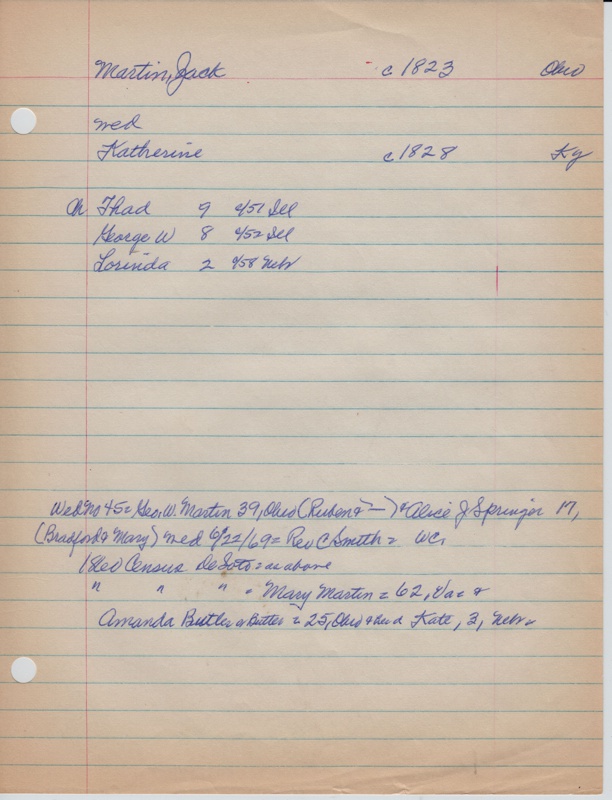 Martin, Jack c 1823 Ohio
wed
Katherine c 1828 Ky
ch Thad 9 c/51 Ill
George W 8 c/52 Ill
Lorinda 2 c/58 Nebr
Wed No 45 = Geo. W. Martin 39, Ohio (Ruben & —) & Alice J Springer 17,
(Bradford & Mary) wed 6/22/69 = Rev C Smith = WC.
1860 Census DeSoto = as above
" " " " Mary Martin = 62, Va = &
Amanda Butler or Butter = 25, Ohio & Kate, 3, Nebr